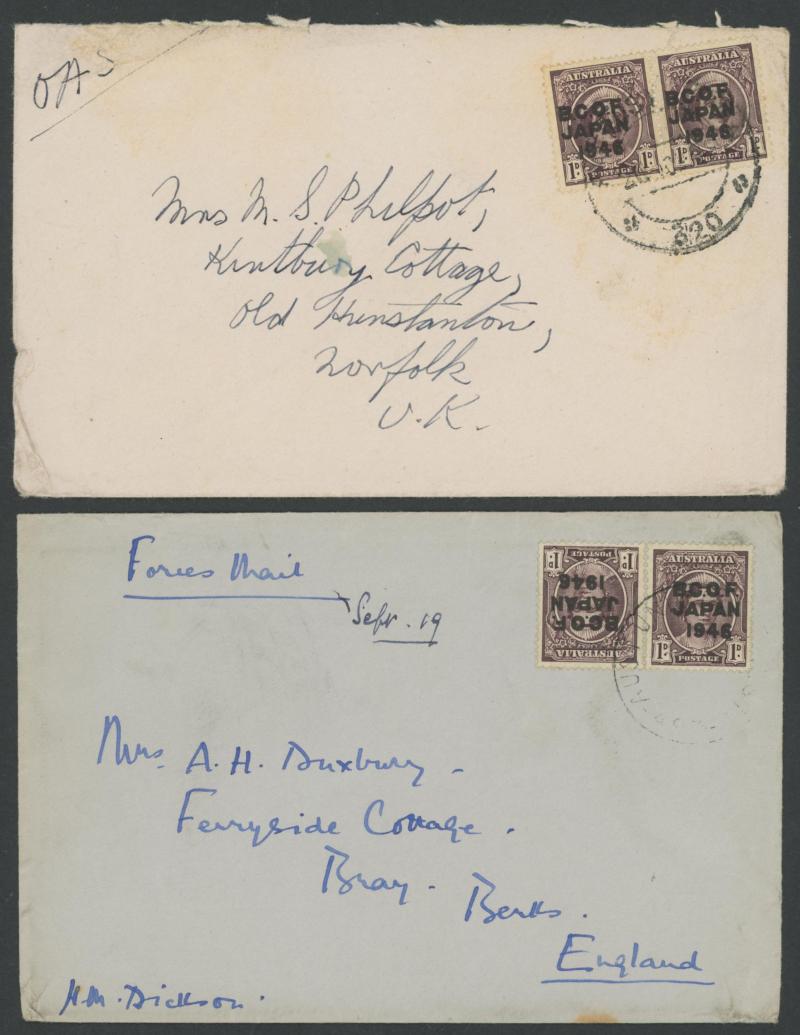 OAS
AUSTRALIA AUSTRALIA
B.C.O.F. B.C.O.F.
JAPAN JAPAN
1946 1946
1D 1D 1D
POSTAGE POSTAGE
320
Mrs M. S. Philpot,
Kintbury Cottage,
Old Hunstanton,
Norfolk
U.K.
Forces Mail
Sept. 19
AUSTRALIA AUSTRALIA
B.C.O.F. B.C.O.F.
JAPAN JAPAN
1946 1946
1D 1D 1D 1D
POSTAGE POSTAGE
Mrs. A. H. Duxbury -
Ferryside Cottage.
Bray.
Berks.
England
H.M. Dickson.